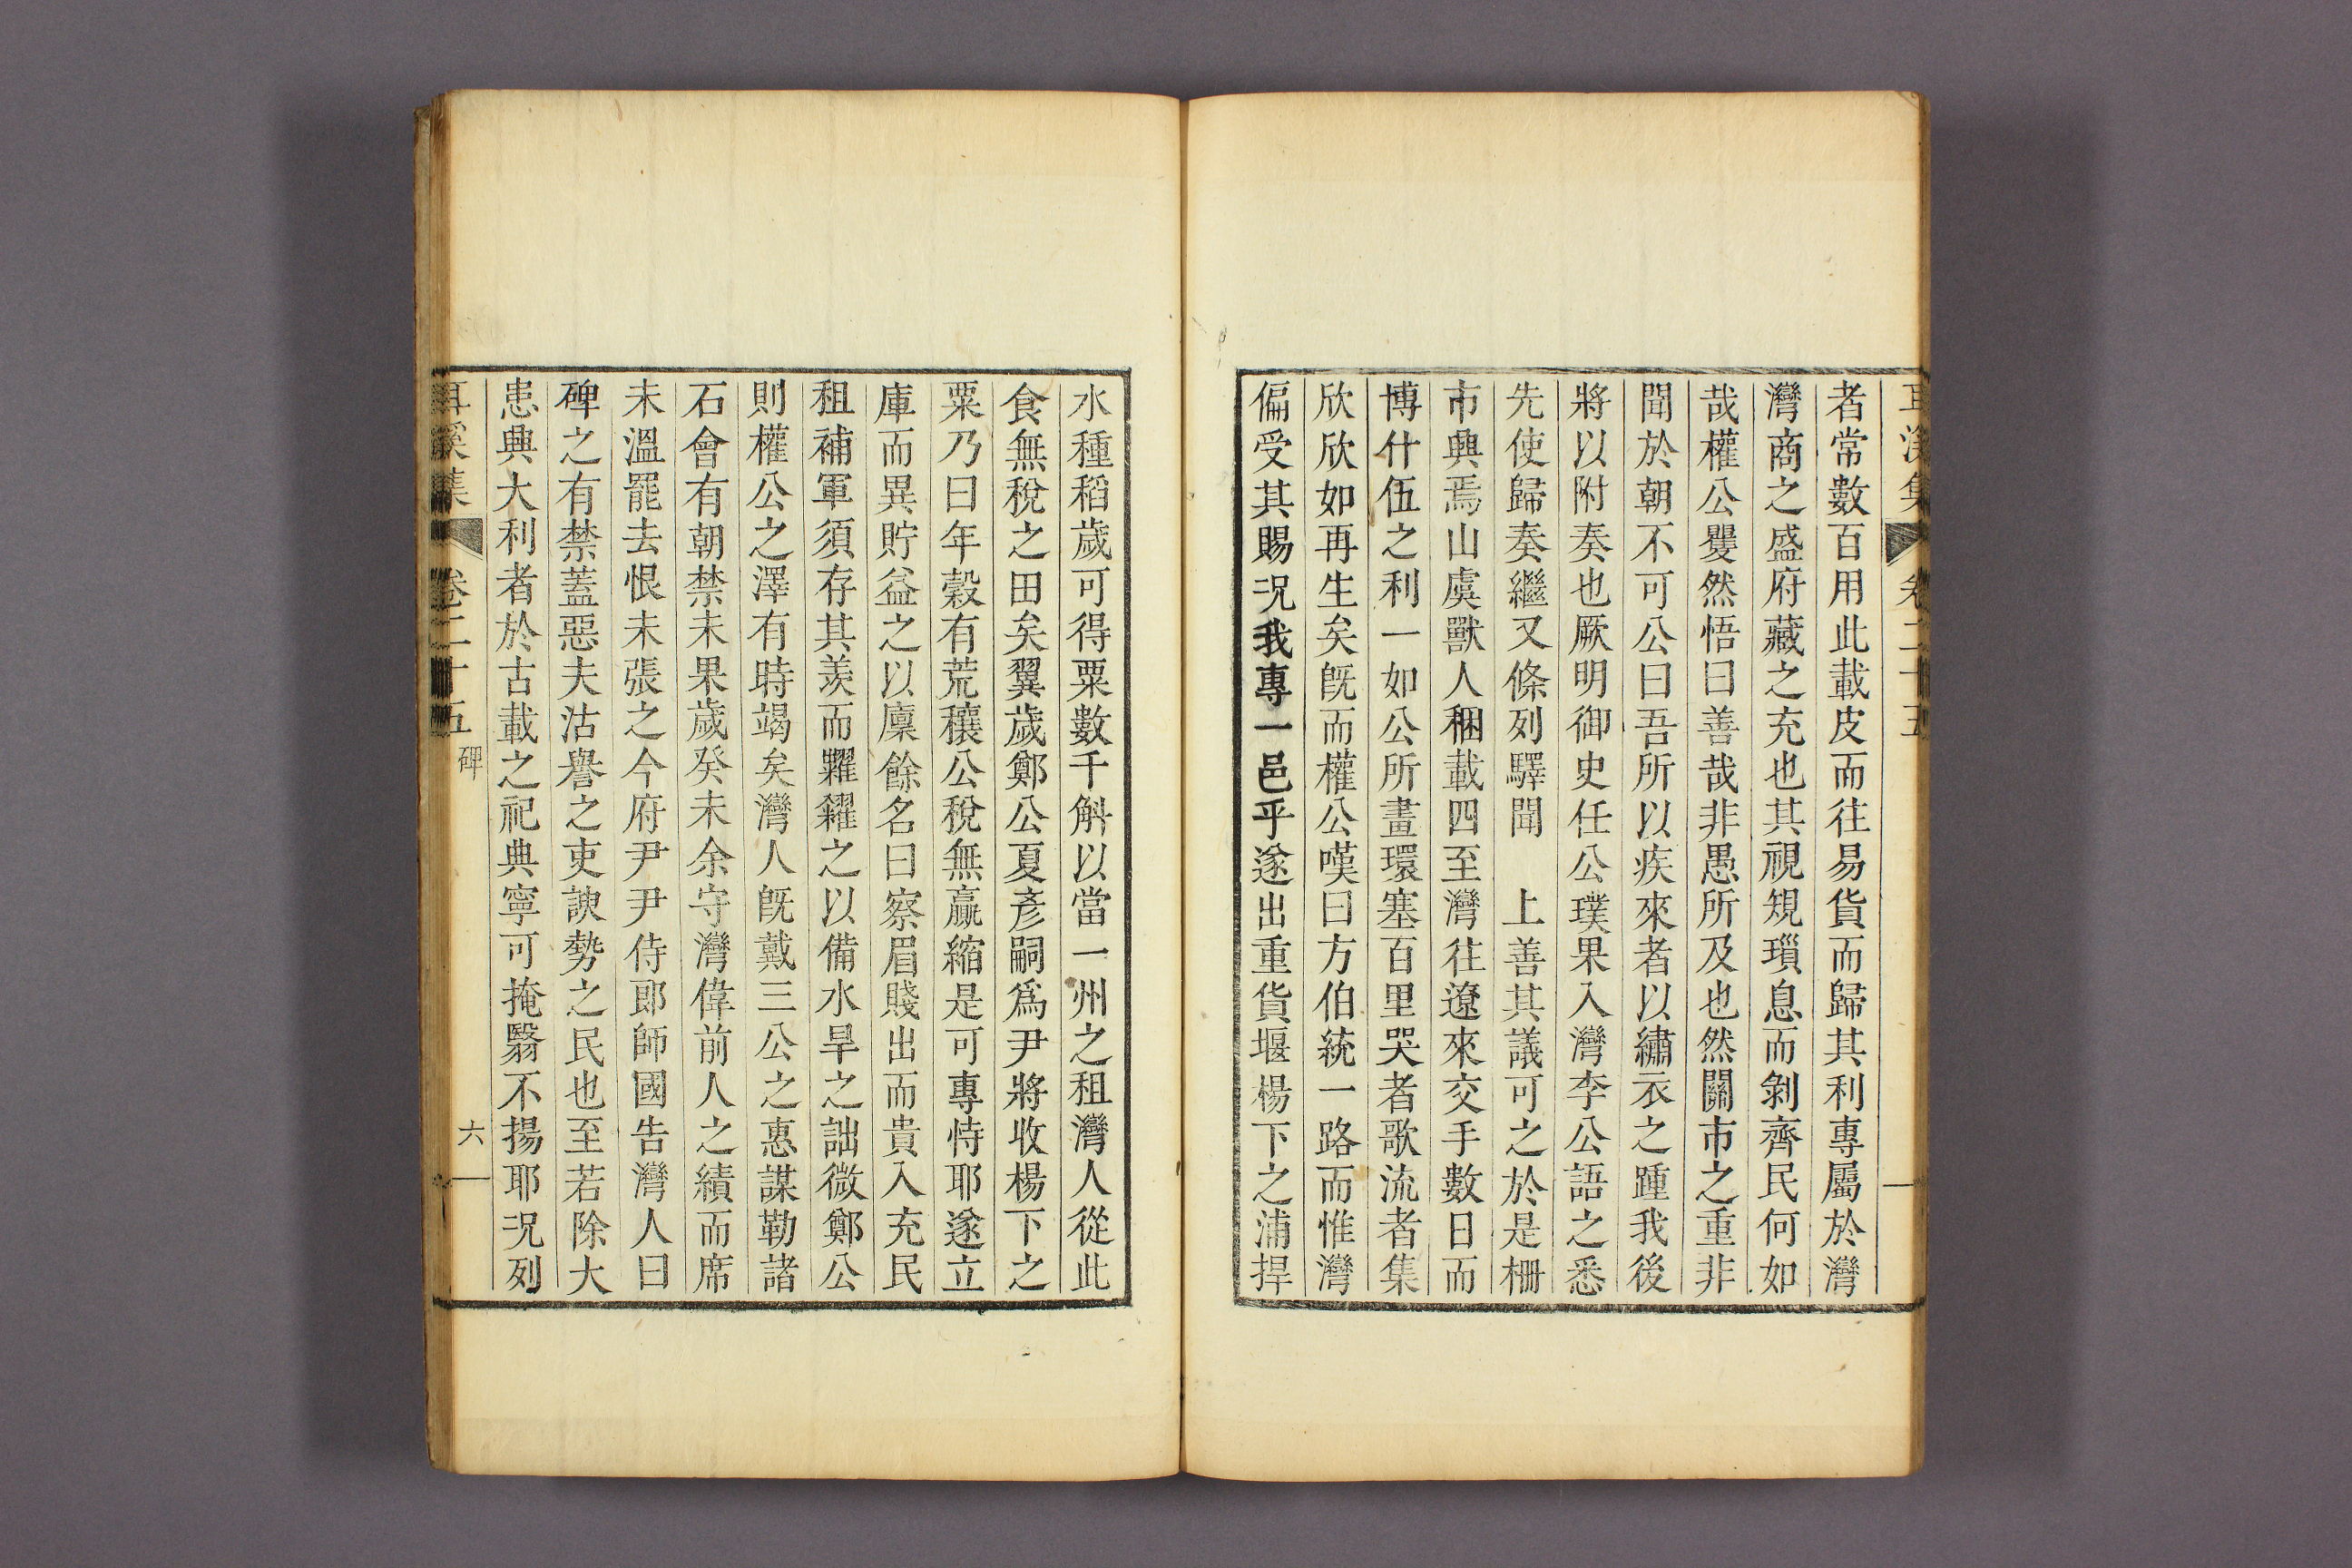 耳溪集 卷二十五
者常數百用此載皮而往易貨而歸其利專屬於灣
灣商之盛府藏之充也其視䂓瑣息而剝齊民何如
哉權公矍然悟曰善哉非愚所及也然關市之重非
聞於朝不可公曰吾所以疾來者以繡衣之踵我後
將以附奏也厥明御史任公璞果入灣李公語之悉
先使歸奏繼又條列驛聞　上善其議可之於是柵
市興焉山虞獸人稛載四至灣往遼來交手數日而
博什伍之利一如公所畫環塞百里哭者歌流者集
欣欣如再生矣旣而權公嘆曰方伯統一路而惟灣
偏受其賜况我專一邑乎遂出重貨堰楊下之浦捍
水種稻歲可得粟數千斛以當一州之租灣人從此
食無稅之田矣翼歲鄭公夏彥嗣爲尹將收楊下之
粟乃曰年穀有荒穰公稅無贏縮是可專恃耶遂立
庫而異貯益之以廩餘名曰察眉賤出而貴入充民
租補軍須存其羨而糶糴之以備水旱之詘微鄭公
則權公之澤有時竭矣灣人旣戴三公之惠謀勒諸
石會有朝禁未果歲癸未余守灣偉前人之績而席
未溫罷去恨未張之今府尹尹侍郎師國告灣人曰
碑之有禁蓋惡夫沽譽之吏諛勢之民也至若除大
患興大利者於古載之祀典寧可掩翳不揚耶况列
耳溪集 卷二十五 碑 六